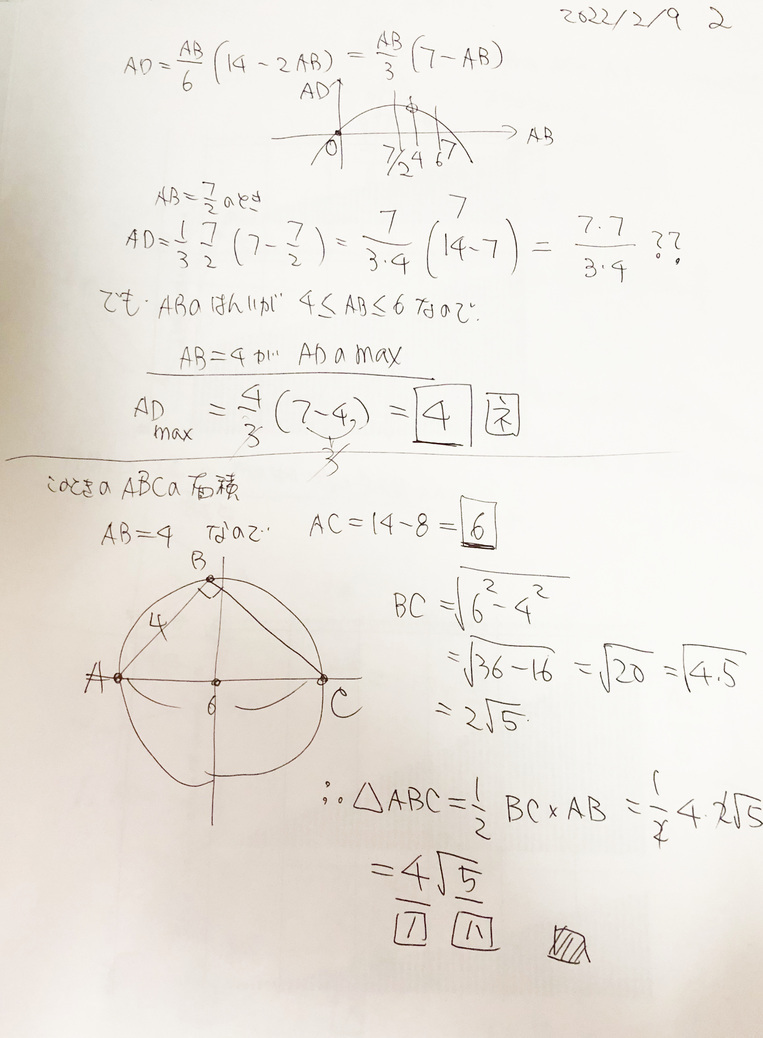 2022/2/9 2
AD = AB/6 (14 - 2AB) = AB/3 (7 - AB)
AD
O 7/2 4 6 7 AB
AB = 7/2 のとき
AD = 1/3 7/2 (7 - 7/2) = 7/3·4 (14 - 7) = 7·7/3·4 ??
7
でも、ABのはんいが 4 ≤ AB ≤ 6 なので、
AB = 4 が ADの max
AD max = 4/3 (7 - 4) = 4 ネ
3
このときの ABCの面積
AB = 4 なので AC = 14 - 8 = 6
B
4
A 6 C
BC = √6² - 4²
= √36 - 16 = √20 = √4.5
= 2√5.
∴ △ABC = 1/2 BC × AB = 1/2 4.2√5
= 4√5
ノ ハ